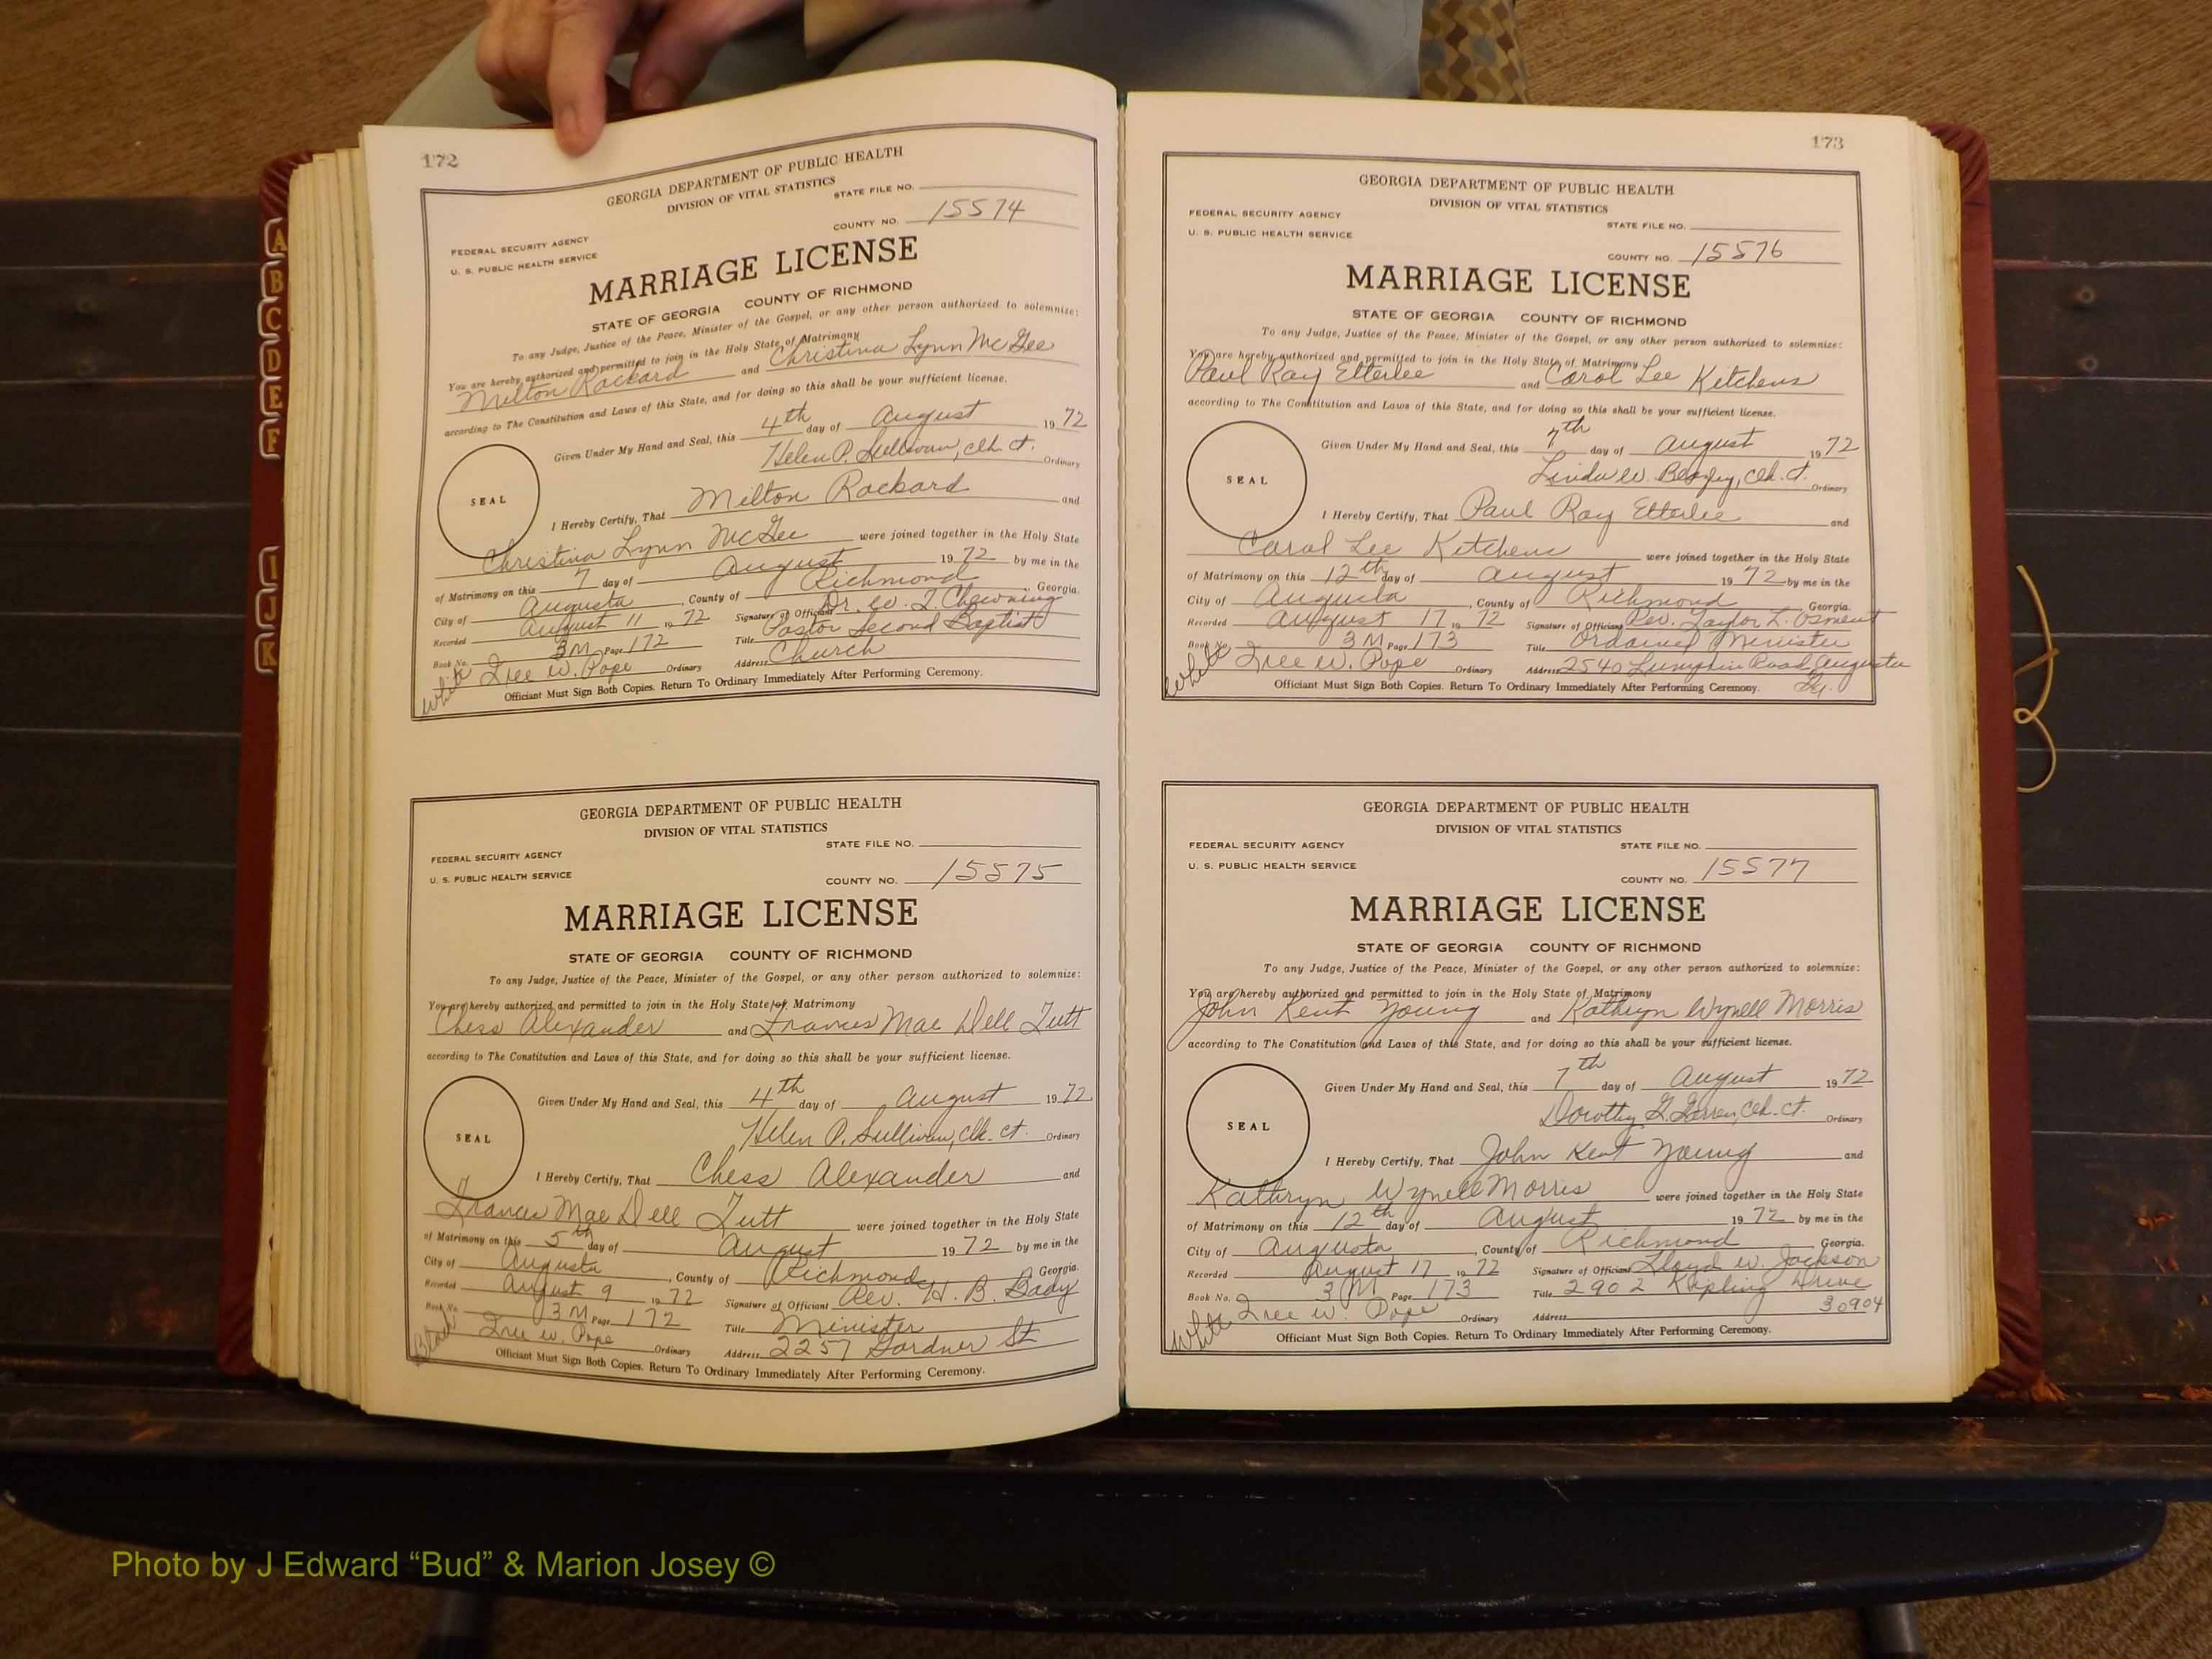 172
GEORGIA DEPARTMENT OF PUBLIC HEALTH
DIVISION OF VITAL STATISTICS
STATE FILE NO.
COUNTY NO. 15574
FEDERAL SECURITY AGENCY
U. S. PUBLIC HEALTH SERVICE
MARRIAGE LICENSE
STATE OF GEORGIA COUNTY OF RICHMOND
To any Judge, Justice of the Peace, Minister of the Gospel, or any other person authorized to solemnize:
You are hereby authorized and permitted to join in the Holy State of Matrimony
Milton Rackard and Christina Lynn McGee
according to The Constitution and Laws of this State, and for doing so this shall be your sufficient license.
Given Under My Hand and Seal, this 4th day of August 1972
Helen P. Sullivan, Clk. Ct. Ordinary
SEAL
I Hereby Certify, That Milton Rackard and
Christina Lynn McGee were joined together in the Holy State
of Matrimony on this 7 day of August 1972 by me in the
City of Augusta, County of Richmond, Georgia.
Recorded August 11 1972 Signature of Officiant Dr. W. J. Chewning
Book No. 3M Page 172 Title Pastor Second Baptist
White Tree W. Pope Ordinary Address Church
Officiant Must Sign Both Copies. Return To Ordinary Immediately After Performing Ceremony.
GEORGIA DEPARTMENT OF PUBLIC HEALTH
DIVISION OF VITAL STATISTICS
STATE FILE NO.
FEDERAL SECURITY AGENCY
U. S. PUBLIC HEALTH SERVICE
COUNTY NO. 15575
MARRIAGE LICENSE
STATE OF GEORGIA COUNTY OF RICHMOND
To any Judge, Justice of the Peace, Minister of the Gospel, or any other person authorized to solemnize:
You are hereby authorized and permitted to join in the Holy State of Matrimony
Chess Alexander and Frances Mae Dell Tutt
according to The Constitution and Laws of this State, and for doing so this shall be your sufficient license.
Given Under My Hand and Seal, this 4th day of August 1972
Helen P. Sullivan, Clk. Ct. Ordinary
SEAL
I Hereby Certify, That Chess Alexander and
Frances Mae Dell Tutt were joined together in the Holy State
of Matrimony on this 5th day of August 1972 by me in the
City of Augusta, County of Richmond, Georgia.
Recorded August 9 1972 Signature of Officiant Rev. H. B.
Book No. 3M Page 172 Title Minister
Black Tree W. Pope Ordinary Address 2257 Gardner St
Officiant Must Sign Both Copies. Return To Ordinary Immediately After Performing Ceremony.
173
GEORGIA DEPARTMENT OF PUBLIC HEALTH
DIVISION OF VITAL STATISTICS
FEDERAL SECURITY AGENCY
U. S. PUBLIC HEALTH SERVICE
STATE FILE NO.
COUNTY NO. 15576
MARRIAGE LICENSE
STATE OF GEORGIA COUNTY OF RICHMOND
To any Judge, Justice of the Peace, Minister of the Gospel, or any other person authorized to solemnize:
You are hereby authorized and permitted to join in the Holy State of Matrimony
Paul Ray Etterlee and Carol Lee Kitchens
according to The Constitution and Laws of this State, and for doing so this shall be your sufficient license.
Given Under My Hand and Seal, this 7th day of August 1972
Linda W. Beazley, Clk. Ct. Ordinary
SEAL
I Hereby Certify, That Paul Ray Etterlee and
Carol Lee Kitchens were joined together in the Holy State
of Matrimony on this 12th day of August 1972 by me in the
City of Augusta, County of Richmond, Georgia.
Recorded August 17 1972 Signature of Officiant Rev. Taylor L. Osment
Book No. 3M Page 173 Title Ordained Minister
White Tree W. Pope Ordinary Address 2540 Lumpkin Road Augusta
Ga.
Officiant Must Sign Both Copies. Return To Ordinary Immediately After Performing Ceremony.
GEORGIA DEPARTMENT OF PUBLIC HEALTH
DIVISION OF VITAL STATISTICS
FEDERAL SECURITY AGENCY
U. S. PUBLIC HEALTH SERVICE
STATE FILE NO.
COUNTY NO. 15577
MARRIAGE LICENSE
STATE OF GEORGIA COUNTY OF RICHMOND
To any Judge, Justice of the Peace, Minister of the Gospel, or any other person authorized to solemnize:
You are hereby authorized and permitted to join in the Holy State of Matrimony
John Kent Young and Kathryn Wynell Morris
according to The Constitution and Laws of this State, and for doing so this shall be your sufficient license.
Given Under My Hand and Seal, this 7th day of August 1972
Dorothy G. Clk. Ct. Ordinary
SEAL
I Hereby Certify, That John Kent Young and
Kathryn Wynell Morris were joined together in the Holy State
of Matrimony on this 12th day of August 1972 by me in the
City of Augusta, County of Richmond, Georgia.
Recorded August 17 1972 Signature of Officiant Lloyd W. Jackson
Book No. 3M Page 173 Title 2902 Kipling Drive
White Tree W. Pope Ordinary Address 30904
Officiant Must Sign Both Copies. Return To Ordinary Immediately After Performing Ceremony.
A
B
C
D
E
F
I
J
K
Photo by J Edward “Bud” & Marion Josey ©